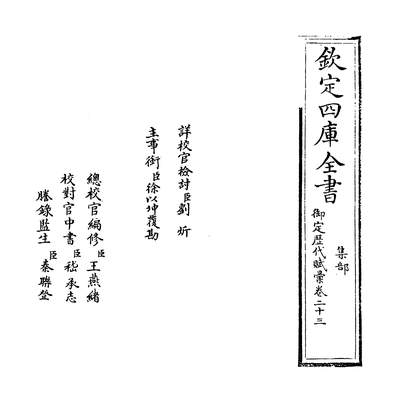 欽定四庫全書
集部
御定歴代賦彙卷二十三
詳校官檢討臣劉炘
主事銜臣徐以坤覆勘
總校官編修臣王燕緒
校對官中書臣嵇承志
謄錄監生臣秦聯登